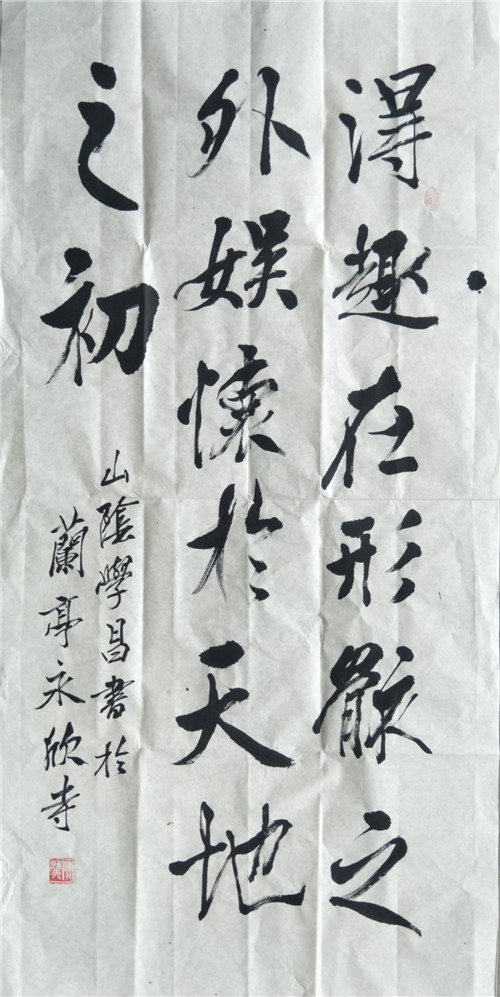 得趣在形骸之
外娱懷於天地
之初
山陰學昌書於
蘭亭永欣寺